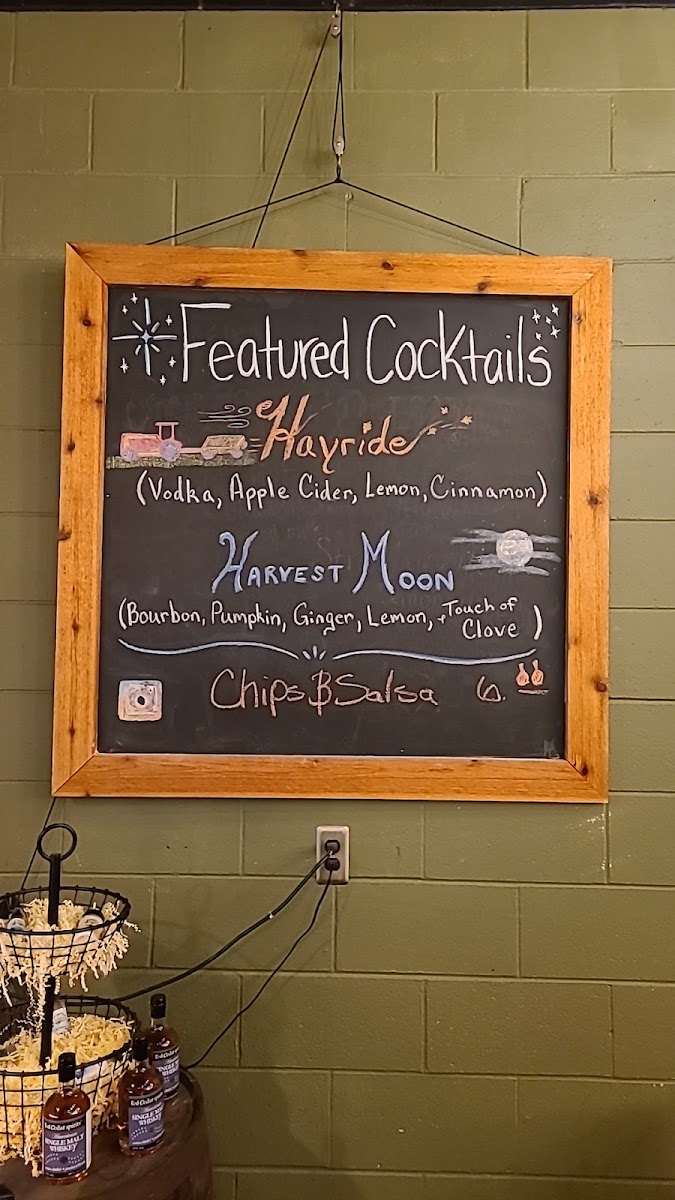 Featured Cocktails
Hayride
(Vodka, Apple Cider, Lemon, Cinnamon)
Harvest Moon
(Bourbon, Pumpkin, Ginger, Lemon, + Touch of Clove)
Chips & Salsa 6.
SINGLE MALT
WHISKEY
SINGLE MALT
WHISKEY